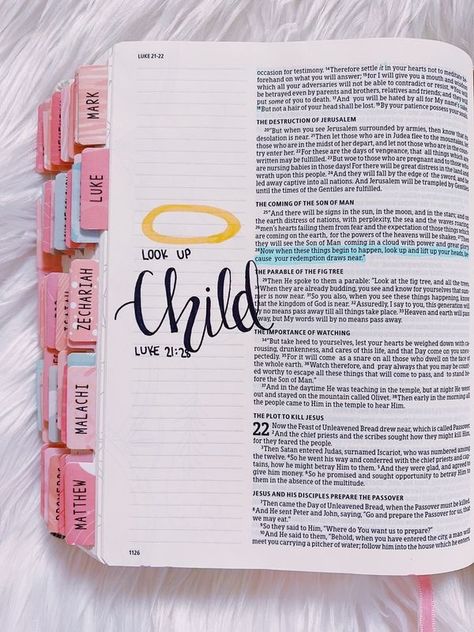 LUKE 21-22
MARK
LUKE
ZECHARIAH
MALACHI
MATTHEW
LOOK UP
Child
LUKE 21:28
1126
occasion for testimony. 14Therefore settle it in your hearts not to meditate
forehand on what you will answer; 15for I will give you a mouth and
which all your adversaries will not be able to contradict or resist. 16You
be betrayed even by parents and brothers, relatives and friends; and they
put some of you to death. 17And you will be hated by all for My name's
18But not a hair of your head shall be lost. 19By your patience possess your
THE DESTRUCTION OF JERUSALEM
20"But when you see Jerusalem surrounded by armies, then know that
desolation is near. 21Then let those who are in Judea flee to the mountains, let
those who are in the midst of her depart, and let not those who are in the
try enter her. 22For these are the days of vengeance, that all things which
written may be fulfilled. 23But woe to those who are pregnant and to those
are nursing babies in those days! For there will be great distress in the land
wrath upon this people. 24And they will fall by the edge of the sword, and be
led away captive into all nations. And Jerusalem will be trampled by Gentiles
until the times of the Gentiles are fulfilled.
THE COMING OF THE SON OF MAN
25"And there will be signs in the sun, in the moon, and in the stars; and on
the earth distress of nations, with perplexity, the sea and the waves roaring;
26men's hearts failing them from fear and the expectation of those things
are coming on the earth, for the powers of the heavens will be shaken. 27Then
they will see the Son of Man coming in a cloud with power and great glory.
28Now when these things begin to happen, look up and lift up your heads, be-
cause your redemption draws near."
THE PARABLE OF THE FIG TREE
29Then He spoke to them a parable: "Look at the fig tree, and all the trees.
30When they are already budding, you see and know for yourselves that sum-
mer is now near. 31So you also, when you see these things happening, know
that the kingdom of God is near. 32Assuredly, I say to you, this generation will
by no means pass away till all things take place. 33Heaven and earth will pass
away, but My words will by no means pass away.
THE IMPORTANCE OF WATCHING
34"But take heed to yourselves, lest your hearts be weighed down with ca-
rousing, drunkenness, and cares of this life, and that Day come on you unex-
pectedly. 35For it will come as a snare on all those who dwell on the face of
the whole earth. 36Watch therefore, and pray always that you may be count-
ed worthy to escape all these things that will come to pass, and to stand be-
fore the Son of Man."
37And in the daytime He was teaching in the temple, but at night He went
out and stayed on the mountain called Olivet. 38Then early in the morning all
the people came to Him in the temple to hear Him.
THE PLOT TO KILL JESUS
22 Now the Feast of Unleavened Bread drew near, which is called Passover.
2And the chief priests and the scribes sought how they might kill Him,
for they feared the people.
3Then Satan entered Judas, surnamed Iscariot, who was numbered among
the twelve. 4So he went his way and conferred with the chief priests and cap-
tains, how he might betray Him to them. 5And they were glad, and agreed to
give him money. 6So he promised and sought opportunity to betray Him to
them in the absence of the multitude.
JESUS AND HIS DISCIPLES PREPARE THE PASSOVER
7Then came the Day of Unleavened Bread, when the Passover must be killed.
8And He sent Peter and John, saying, "Go and prepare the Passover for us, that
we may eat."
9So they said to Him, "Where do You want us to prepare?"
10And He said to them, "Behold, when you have entered the city, a man will
meet you carrying a pitcher of water; follow him into the house which he enters.